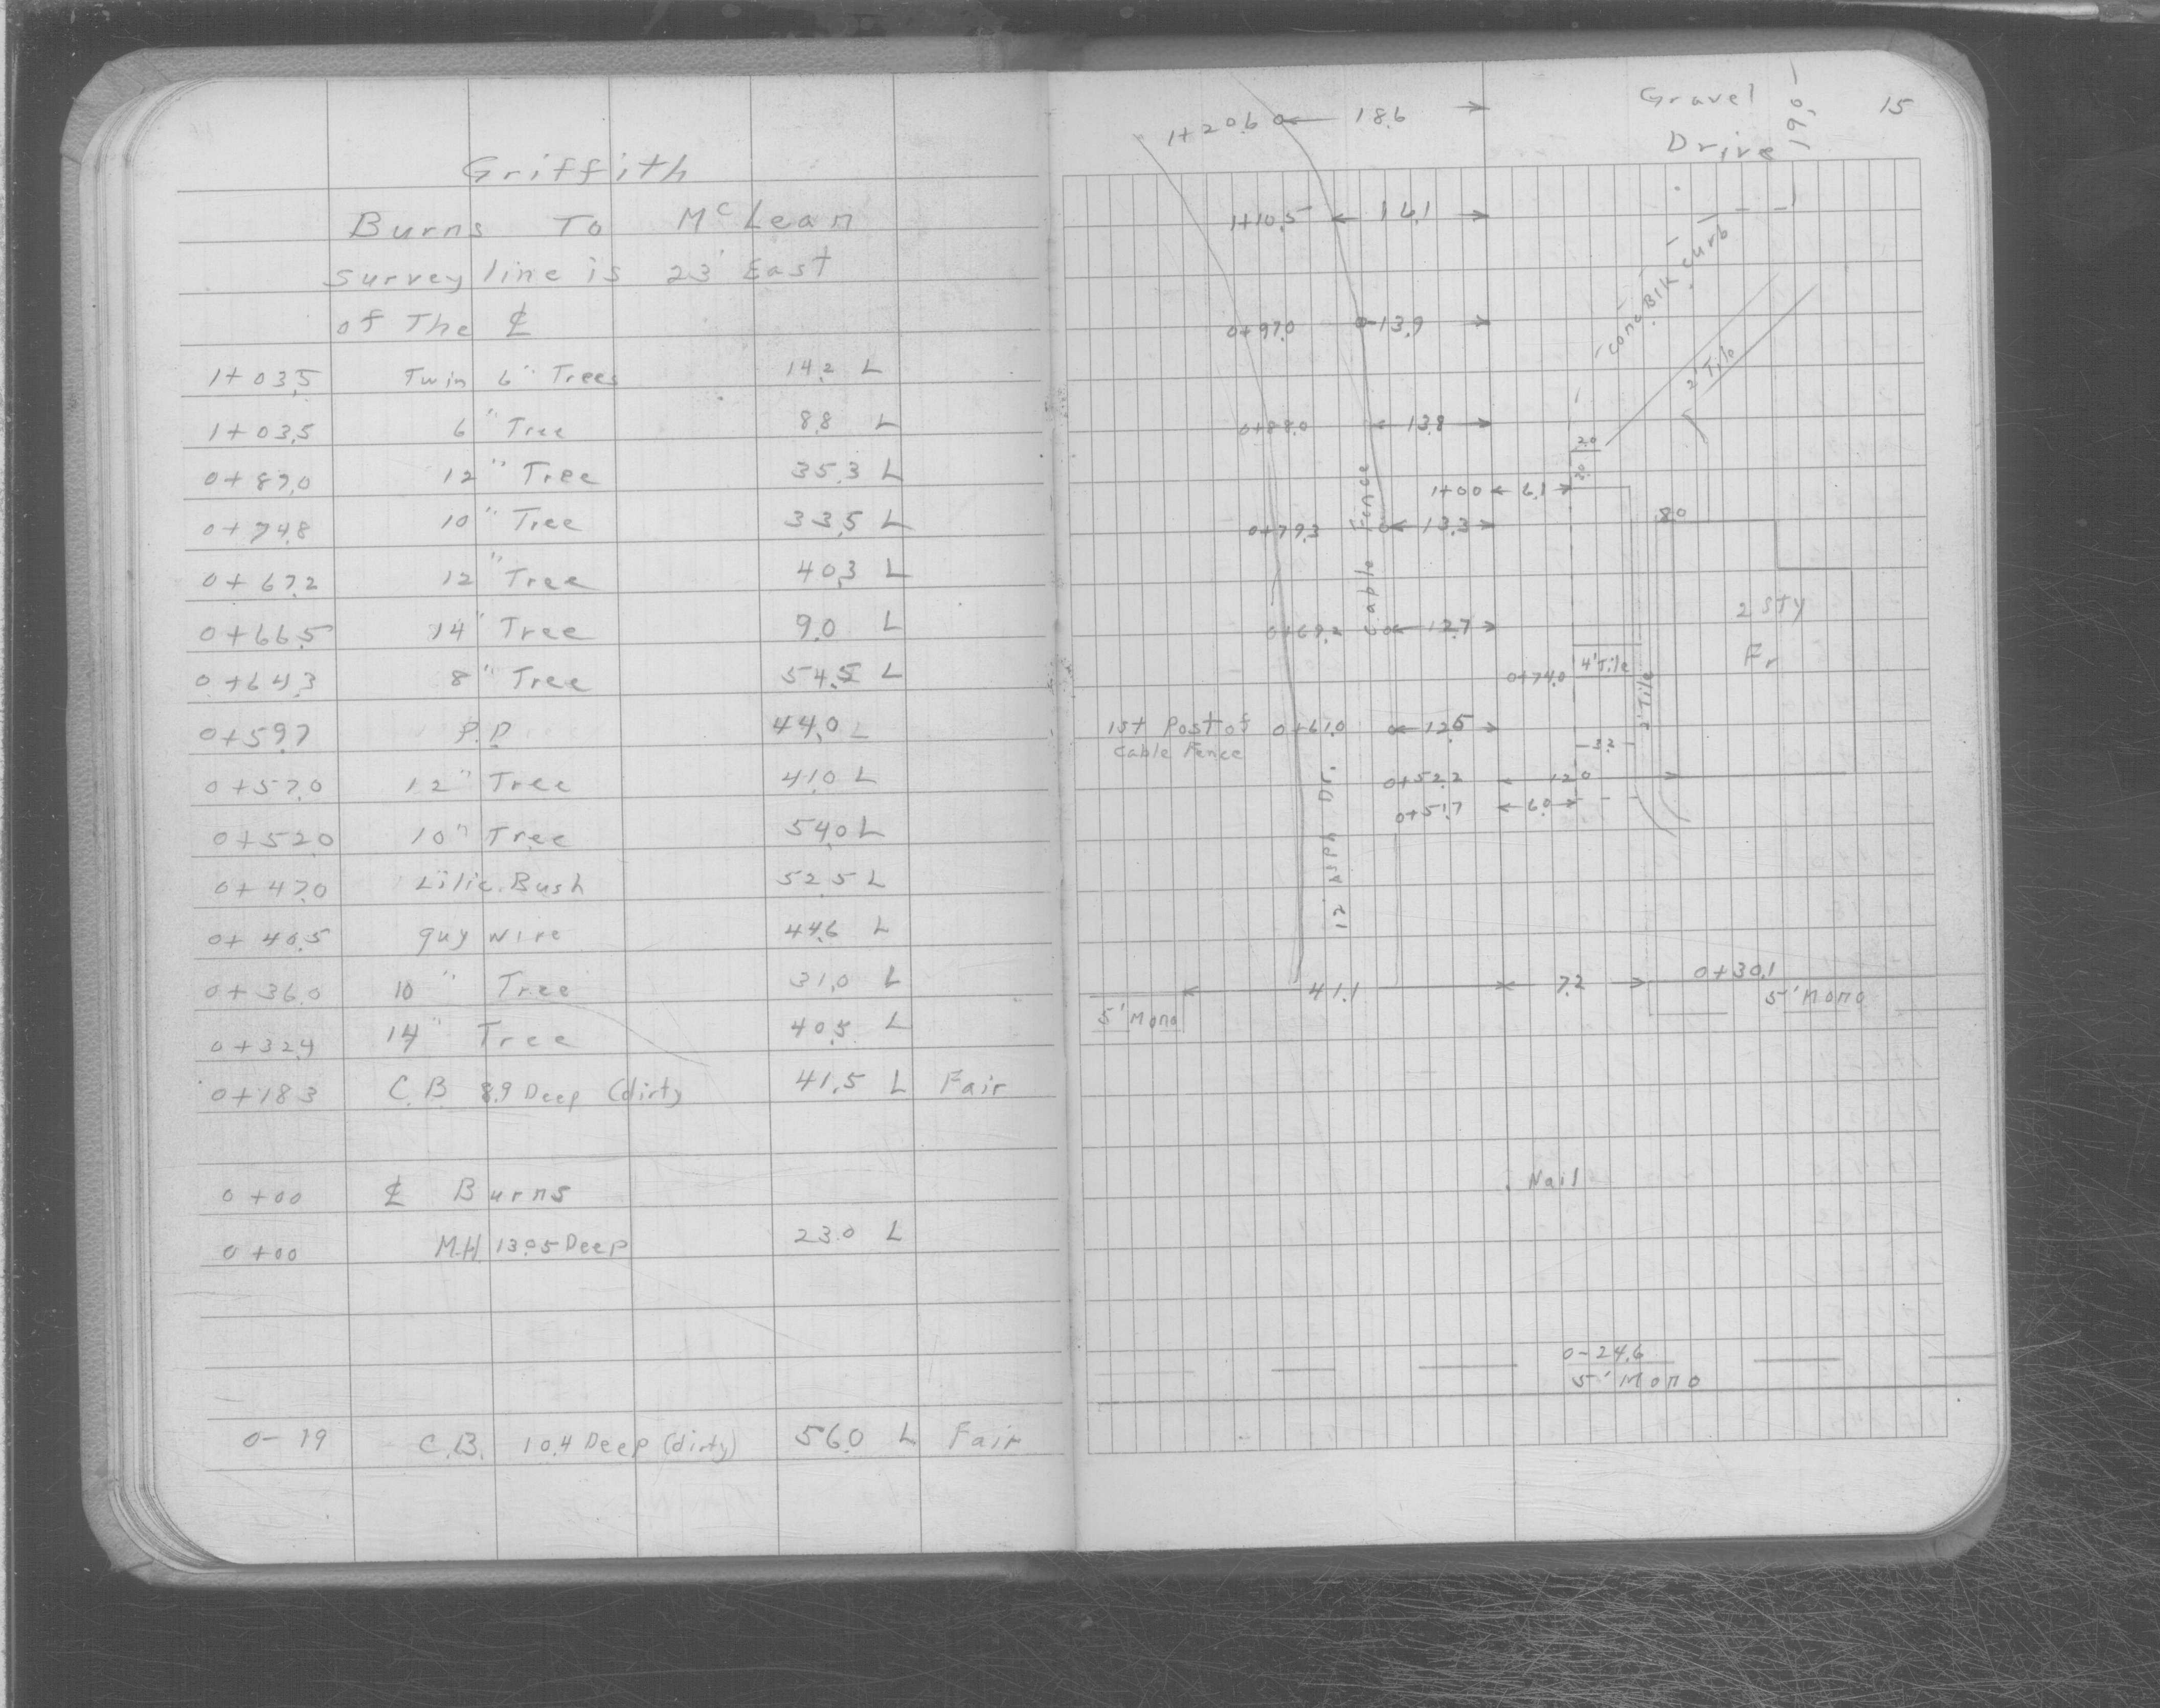 Griffith
Burns To McLean
Survey line is 23' East
of The ℄
1+03.5 Twin 6" Trees 14.2 L
1+03.5 6" Tree 8.8 L
0+87.0 12" Tree 35.3 L
0+74.8 10" Tree 33.5 L
0+67.2 12" Tree 40.3 L
0+66.5 14" Tree 9.0 L
0+64.3 8" Tree 54.5 L
0+59.7 P.P. 44.0 L
0+57.0 12" Tree 41.0 L
0+52.0 10" Tree 54.0 L
0+47.0 Lilic. Bush 52.5 L
0+40.5 guy wire 44.6 L
0+36.0 10" Tree 31.0 L
0+32.4 14" Tree 40.5 L
0+18.3 C.B. 8.9 Deep (dirty) 41.5 L Fair
0+00 ℄ Burns
0+00 M.H. 13.05 Deep 23.0 L
0-19 C.B. 10.4 Deep (dirty) 56.0 L Fair
15
Gravel
Drive
19.0
1+20.6 18.6
1+10.5 16.1
conc Blk curb
0+97.0 13.9
2' Tile
0+88.0 13.8
2.0
2.0
1+00 6.1
8.0
0+79.3 13.3
Cable Fence
2 STY
Fr
0+69.2 12.7
4' Tile
0+74.0
2' Tile
1st Post of 0+61.0 12.5
Cable Fence
3.2
0+52.2 12.0
0+51.7 6.0
12' Asph Dr.
41.1 7.2 0+30.1
5' Mono 5' Mono
Nail
0-24.6
5' Mono